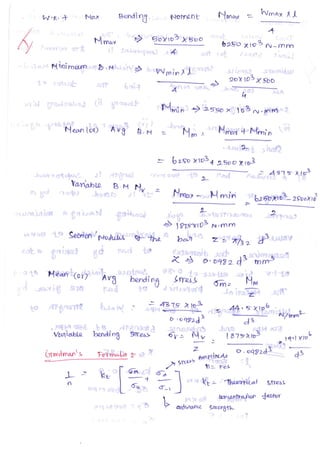 W.k.t Max Bending Moment Mmax = Wmax × l
4
Mmax => 50×10³ × 500
4
6250 × 10³ N-mm
Minimum B.M => Wmin × l
4
20×10³ × 500
4
Mmin => 2550 × 10³ N-mm
Mean (or) Avg B.M = Mm = Mmax + Mmin
2
= 6250×10³ + 2500×10³
2
4375 ×10³
Variable B.M Mv = Mmax - Mmin
2
6250×10³ - 2500×10³
2
=> 1875×10³ N-mm
Section Modulus of the bar Z = π/32 d³
Z => 0.0982 d³ mm³
Mean (or) Avg bending stress σm = Mm
Z
= 4375 ×10³
0.0982d³
44.5×10⁶
d³
N/mm²
Variable bending stress σv = Mv
Z
1875×10³
0.0982d³
19.1×10⁶
d³
Goodman's Formula =
1
n
= kt [ σm
σu
+ σv
σ-1 ]
stress amplitude
n = FOS
kt = Theoretical stress
concentration factor
endurance strength